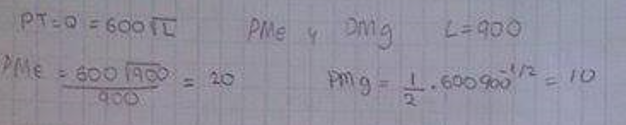 PT=Q = 600√L PMe y PMg L=900
PMe = 600√900 / 900 = 20 PMg = 1/2 · 600 900^-1/2 = 10